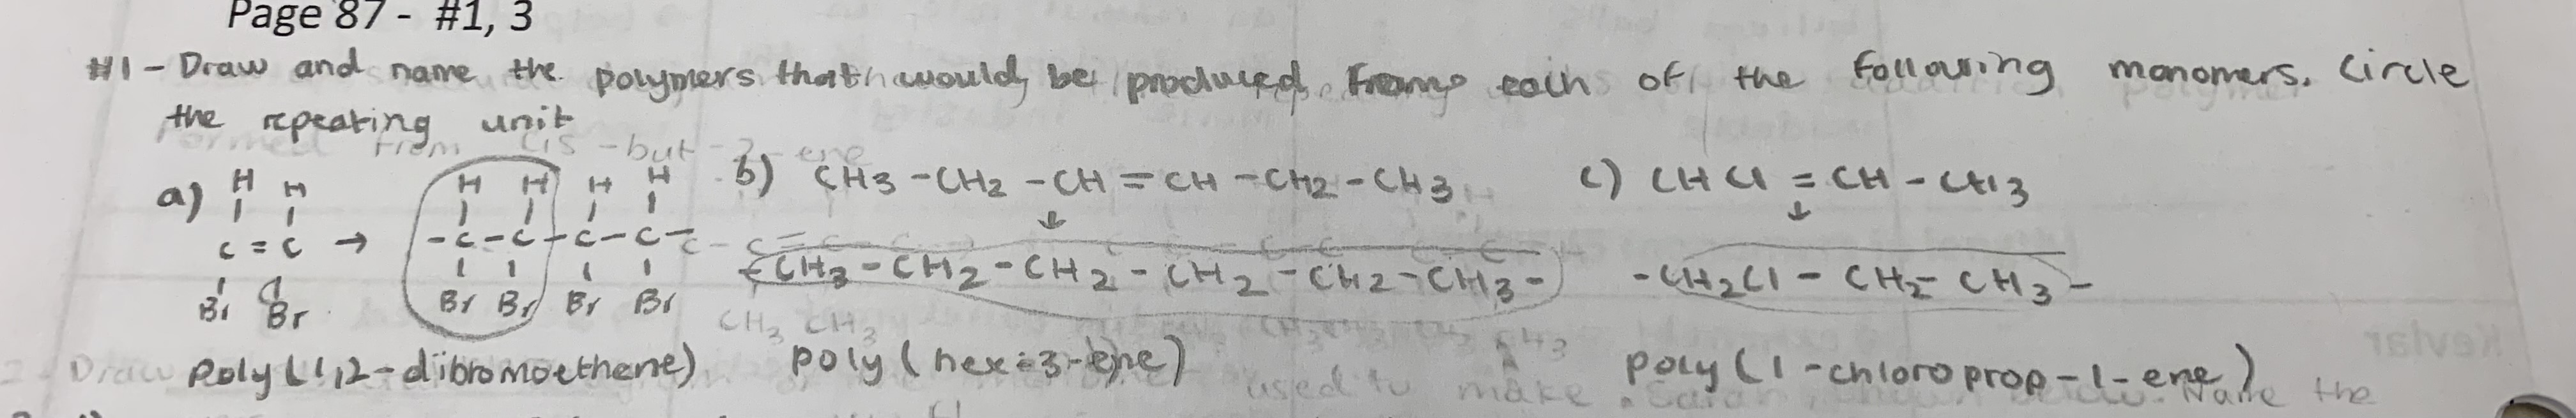 Page 87 - #1, 3
#1 - Draw and name the polymers that would be produced from each of the following monomers. Circle
the repeating unit
a) H H → H H H H
C = C → - C - C - C - C -
Br Br Br Br Br Br
b) CH3 - CH2 - CH = CH - CH2 - CH3
↓
- CH3 - CH2 - CH2 - CH2 - CH2 - CH3 -
c) CHCl = CH - CH3
↓
- CH2Cl - CH2 - CH3 -
poly(1,2-dibromoethene) poly(hex-3-ene) poly(1-chloroprop-1-ene)